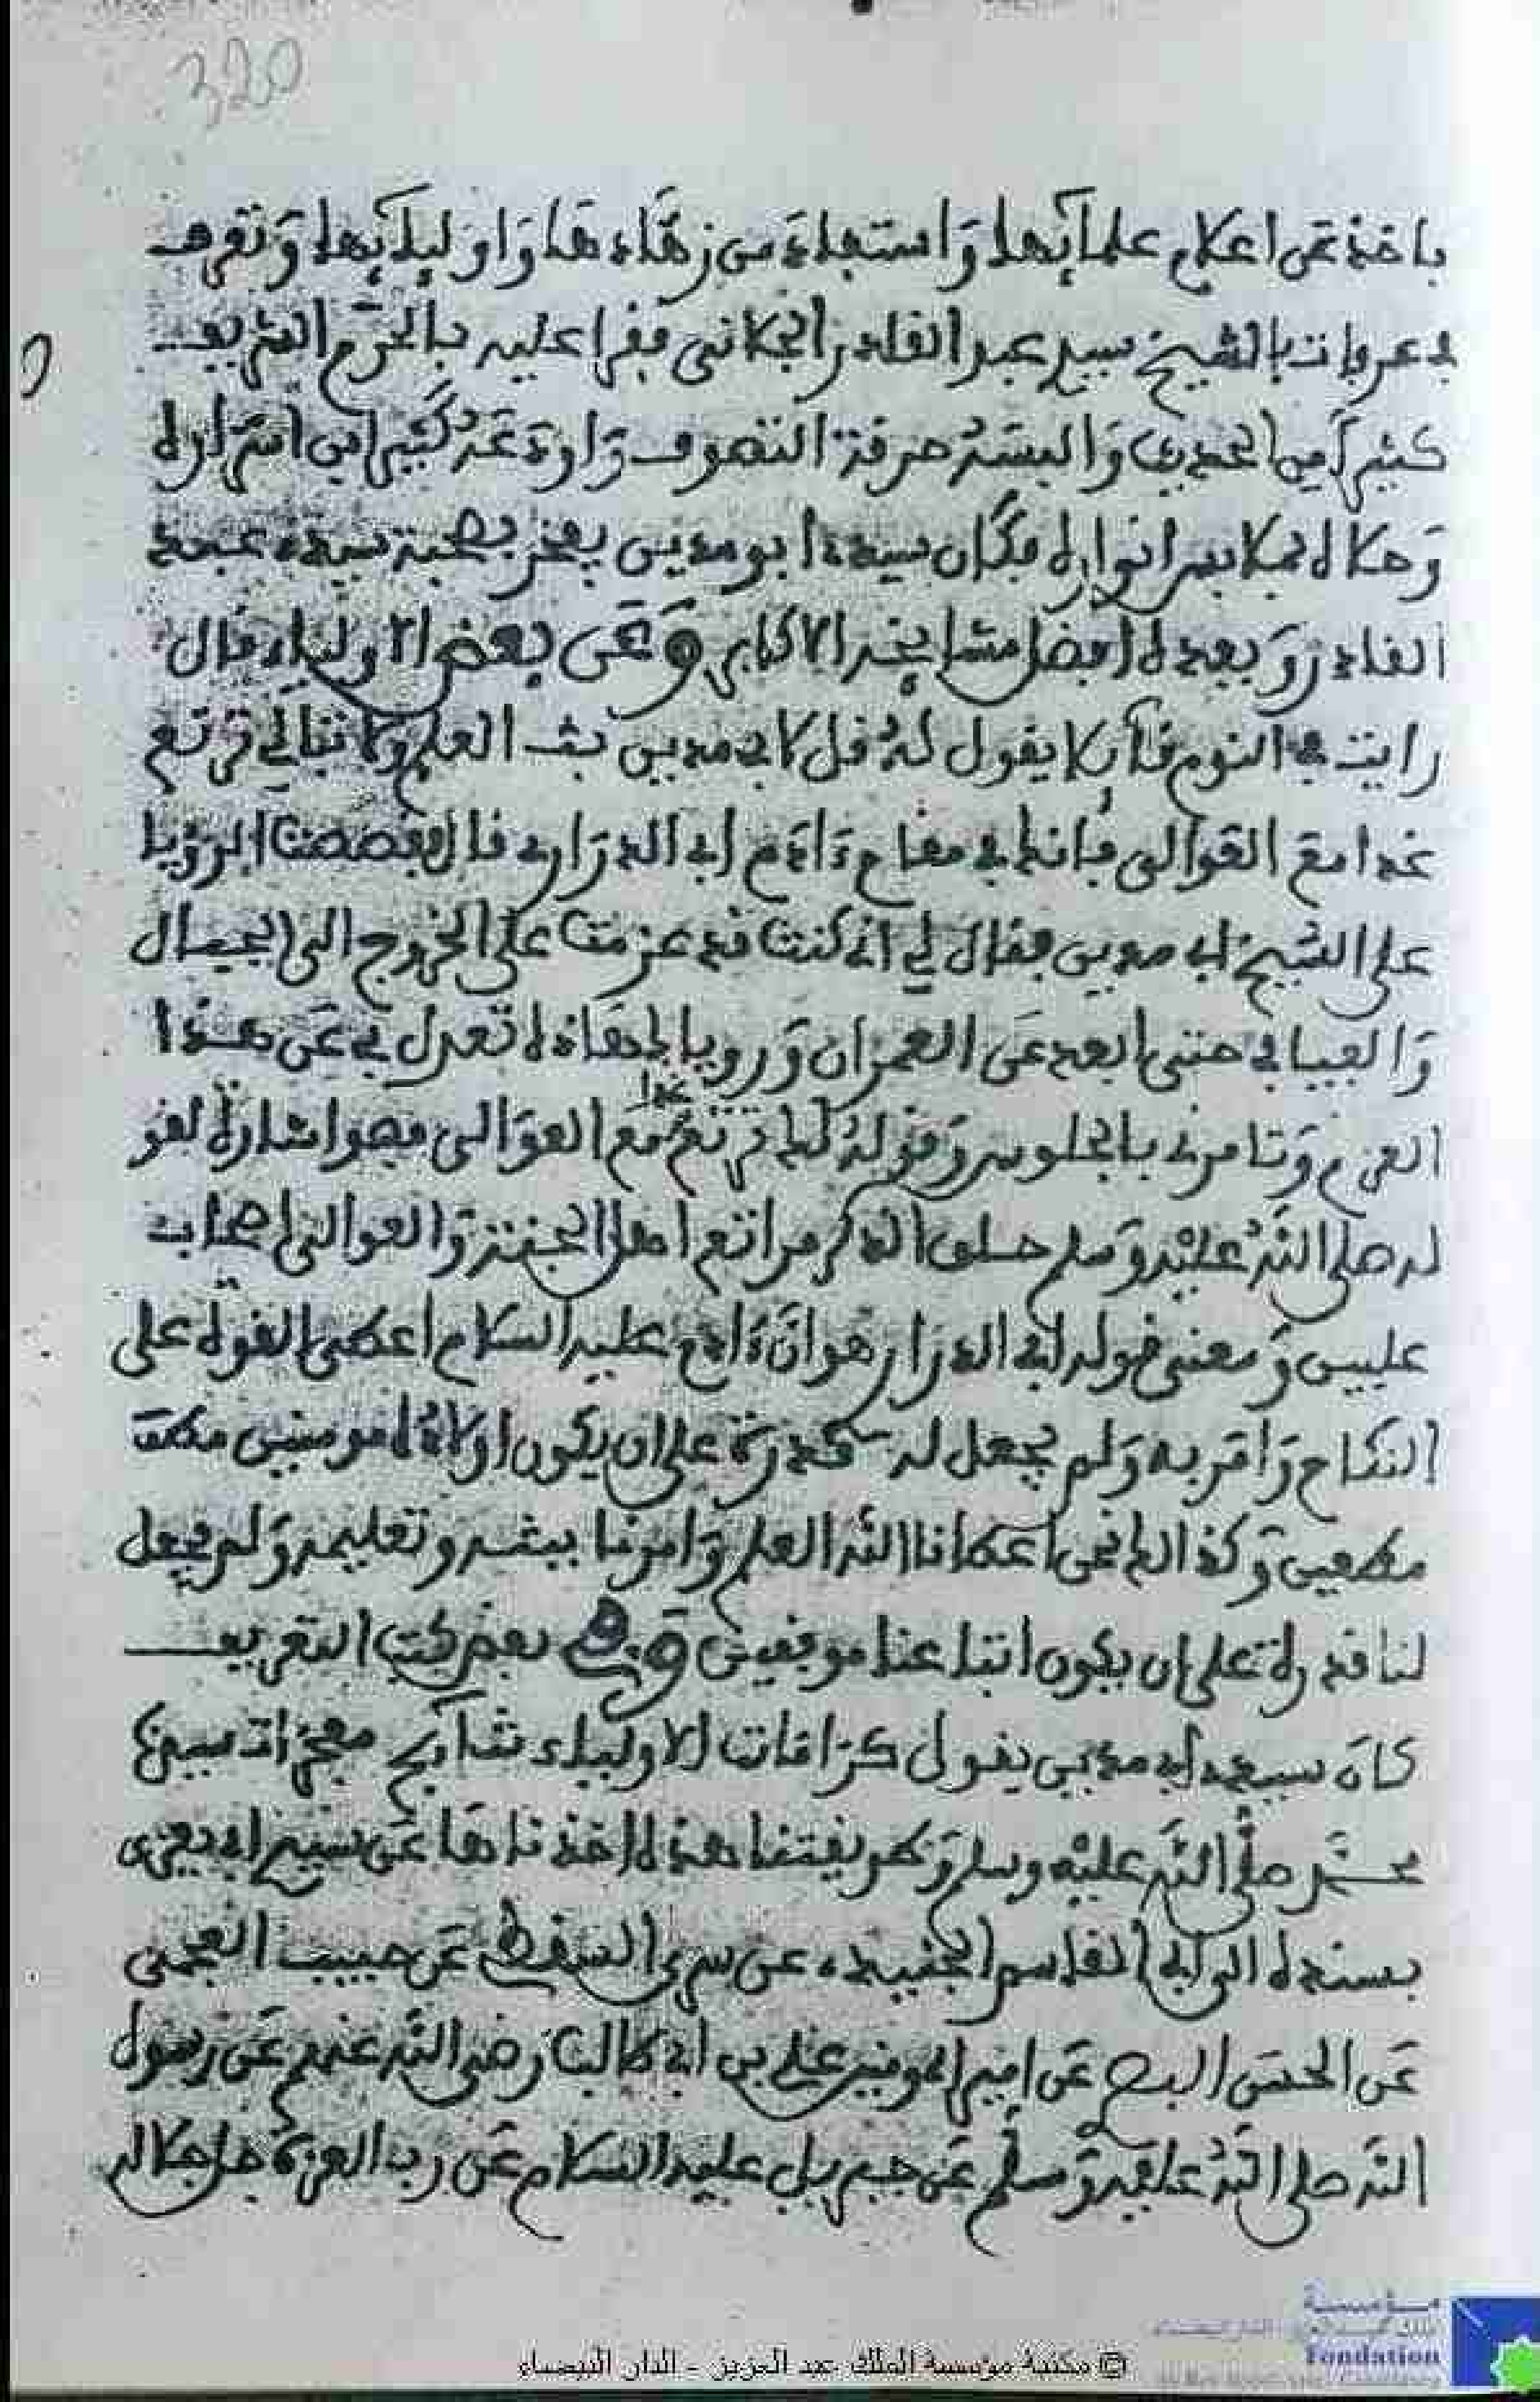 320
فاخذ عن اعلام علمآئها وَاستفادَ من زهّادها وَاوليآئها وَتعرف
بعرفات بالشيخ سيد عبد القادر الجيلاني فقرا عليه بالحَرم الشريف
كثيرا من الحديث وَالبسَهُ خرقة التصوف وَاودَعَهُ كثيرا من اسراره
وَحلاه بملابس انواره فكان سيدي ابو مدين يفخر بصحبة سيدي عبد
القادر وَيعده افضل مشايخه الاكابر وَعَن بعض الاولياء قال
رايت في النوم قآئلا يقول لهُ قل لابي مدين بث العلم ولا تبالي ترتع
غدا مع العَوالي فانك في مقام ءادم ابي الذرَاري قال فقصصت الرؤيا
على الشيخ ابي مدين فقال لي اني كنت قد عزمت على الخروج الى الجبال
وَالفيافي حتى ابعد عَن العمرَان وَروياك هذه تعدل بي عَن هذا
العزم وَتامرني بالجلوس وَقولهُ لك ترتع غدا مع العوَالي فهو اشارة لقو
له صلى اللهُ عليْه وَسلم حلق الذكر مراتع اهل الجنة وَالعوالي اصحاب
عليين وَمعنى قوله ابي الذرَاري هو انّ ءادم عليه السلام اعطي القوة على
النكاح وَامر به وَلم يجعل له قدرَة على ان يكون اولاده مومنين مطـ
مطيعين وَكذالك نحن اعطانا الله العلم وَامرنا ببثه وتعليمه وَلم يجعل
لنا قدرة على ان يكون اتباعنا موفقين وَفي بعض كتب التعريف
كان سيدي ابي مدين يقول كرَامات الاولياء نتآئج معجزات نبينا
محمَّد صلَّى اللهُ عليْه وسلم وَطريقتنا هذه اخذناها عَن سيد ابي يعزى
بسنده الى ابي القاسم الجنيد عن سري السقطي عَن حبيب العجمي
عَن الحسَن البصري عَن امير المومنين علي بن ابي طالب رَضي الله عنهم عَن رسول
الله صلى اللهُ عليْه وَسلم عَن جبريل عليه السلام عَن رب العزة جل جلاله
مؤسسة
Fondation
© مكتبة مؤسسة الملك عبد العزيز - الدار البيضاء